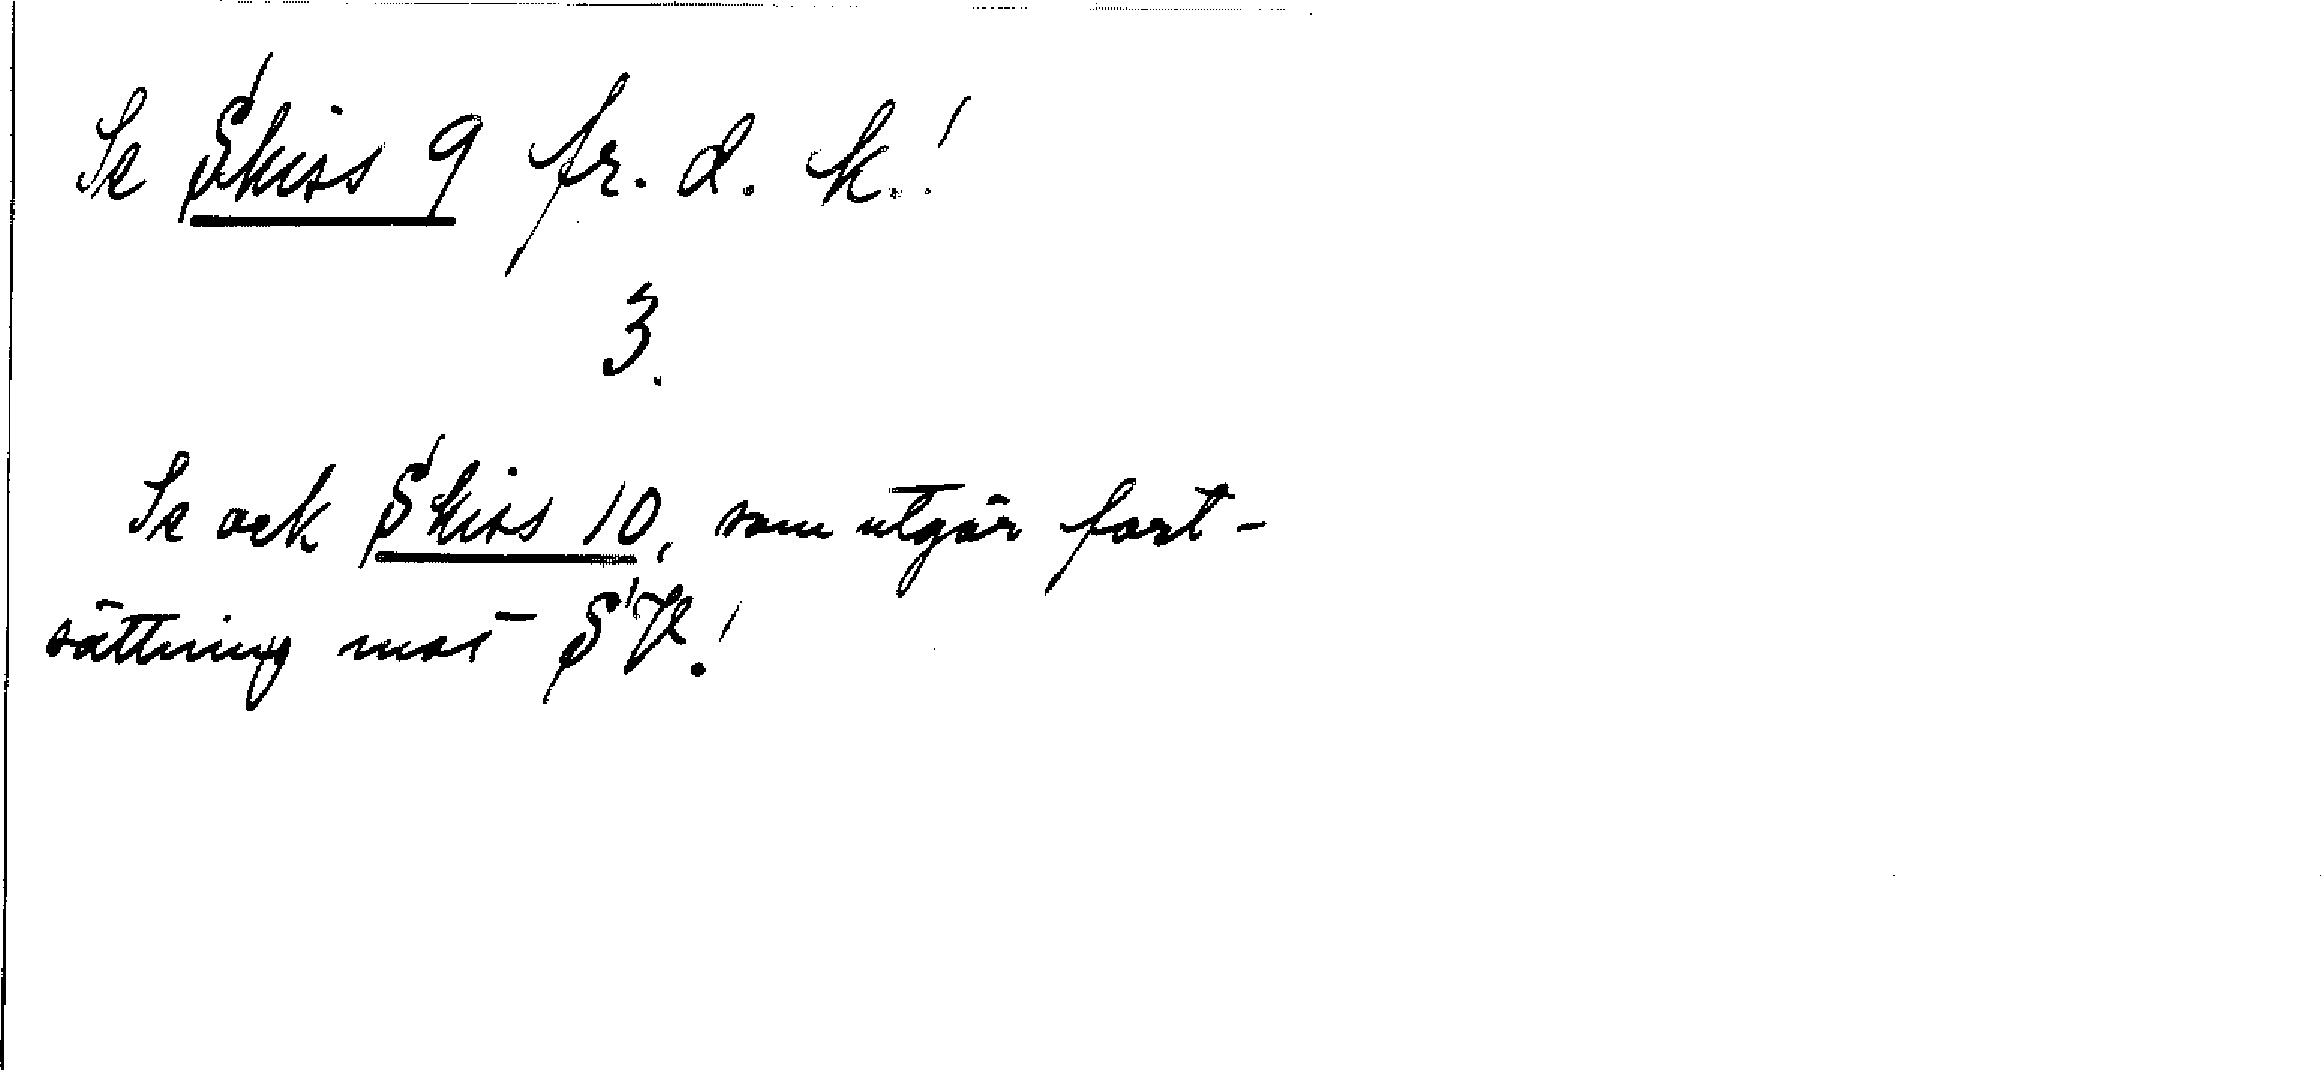 Se Skiss 9 fr. d. k.!
3.
Se ock Skiss 10, som utgör fort-
sättning mot SV.!